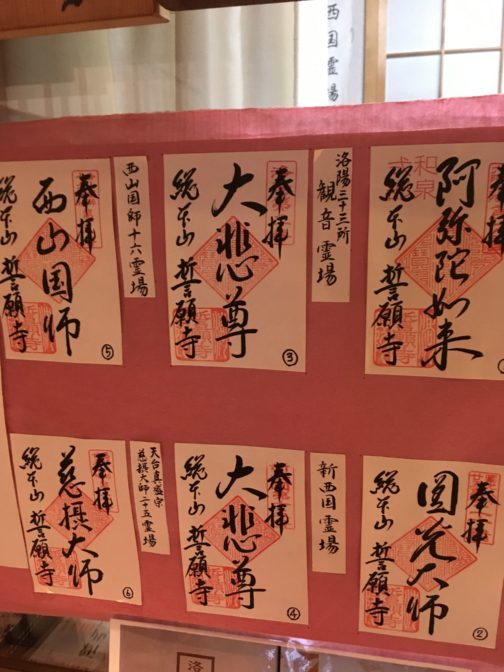 西国霊場
奉拝
阿弥陀如来
総本山 誓願寺
和泉
洛陽三十三所
観音霊場
奉拝
大悲尊
総本山 誓願寺
③
西山国師十六霊場
奉拝
西山国師
総本山 誓願寺
⑤
奉拝
圓光大師
総本山 誓願寺
②
新西国霊場
奉拝
大悲尊
総本山 誓願寺
④
天台真盛宗
慈摂大師二十五霊場
奉拝
慈摂大師
総本山 誓願寺
⑥
洛